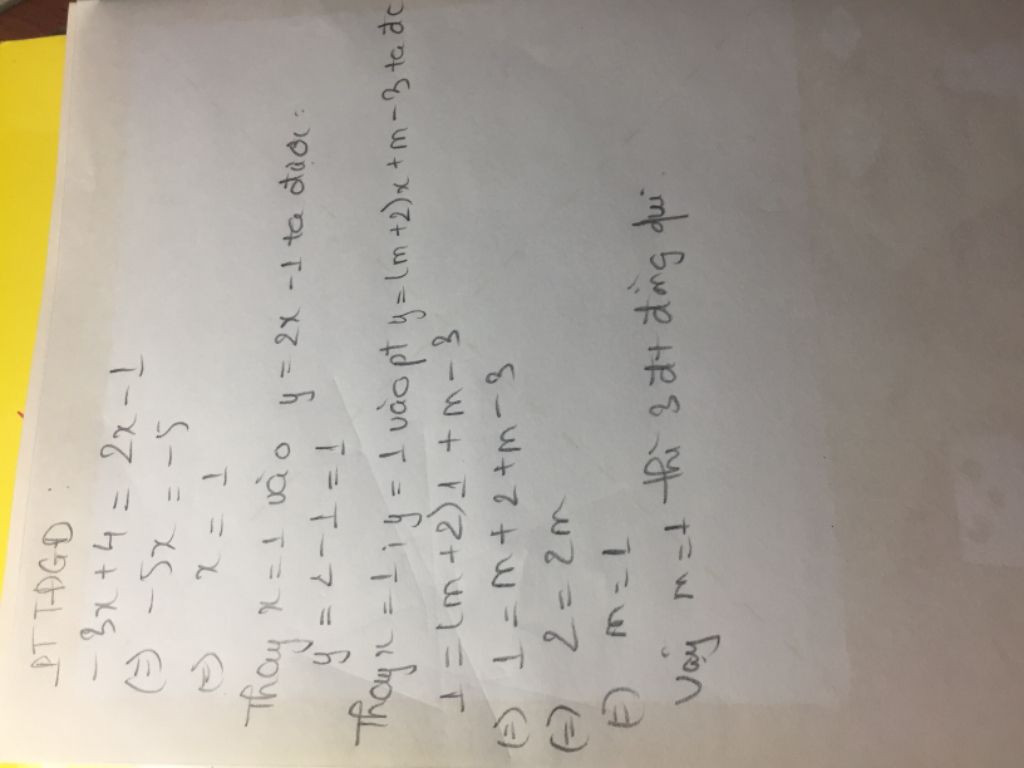 PT TĐGĐ :
-3x + 4 = 2x - 1
(=) -5x = -5
(=) x = 1
Thay x = 1 vào y = 2x - 1 ta được :
y = 2 - 1 = 1
Thay x = 1 ; y = 1 vào pt y = (m+2)x + m - 3 ta đc
1 = (m+2)1 + m - 3
(=) 1 = m + 2 + m - 3
(=) 2 = 2m
(=) m = 1
Vậy m = 1 thì 3 đt đồng qui.